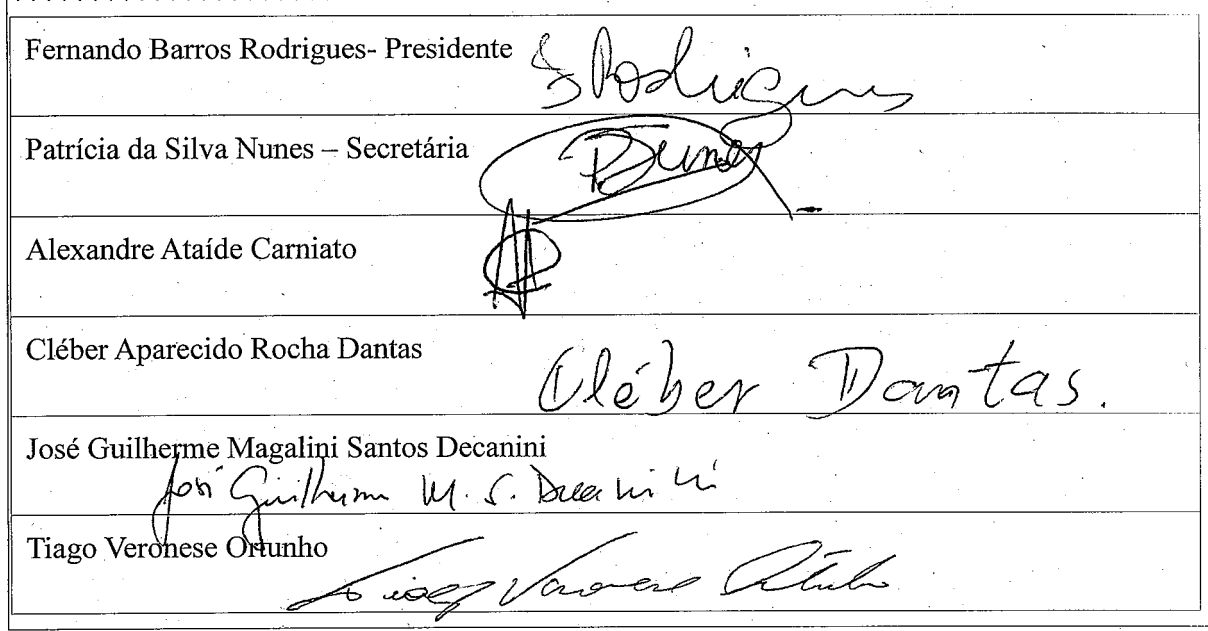 Fernando Barros Rodrigues- Presidente
F Rodrigues
Patrícia da Silva Nunes – Secretária
PSunes
Alexandre Ataíde Carniato
Cléber Aparecido Rocha Dantas
Cléber Dantas.
José Guilherme Magalini Santos Decanini
José Guilherme M. S. Decanini
Tiago Veronese Ortunho
Tiago Veronese Ortunho